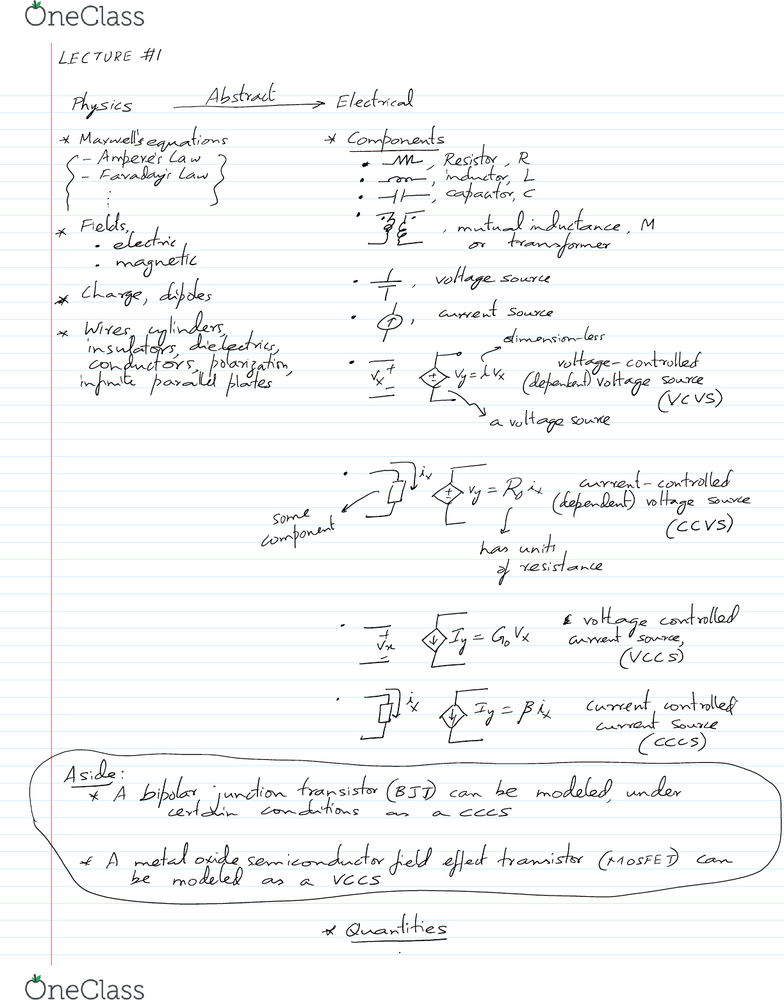 OneClass
LECTURE #1
Physics Abstract Electrical
* Maxwell's equations
- Ampere's Law
- Faraday's Law
* Fields,
• electric
• magnetic
* Charge, dipoles
* Wires, cylinders,
insulators, dielectrics,
conductors, polarization,
infinite parallel plates
* Components
• , Resistor, R
• , inductor, L
• , capacitor, C
• , mutual inductance, M
or transformer
• , voltage source
• , current source
dimension-less
• + Vx - Vy = λVx voltage-controlled
(dependent) voltage source
(VCVS)
a voltage source
• ix Vy = R0 ix current-controlled
(dependent) voltage source
(CCVS)
some
component
has units
of resistance
• + Vx - Iy = G0 Vx voltage controlled
current source,
(VCCS)
• ix Iy = β ix current controlled
current source
(CCCS)
Aside:
* A bipolar junction transistor (BJT) can be modeled, under
certain conditions as a CCCS
* A metal oxide semiconductor field effect transistor (MOSFET) can
be modeled as a VCCS
* Quantities
OneClass